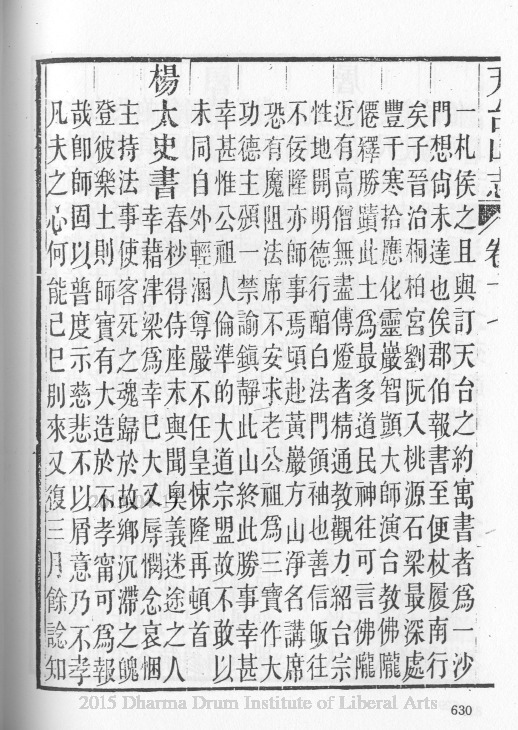 天台山志 卷十
一札侯之且與訂天台之約寓書者爲一沙
門想尙未達也俟郡伯報書至便杖履南行
矣子晉治桐柏宮劉阮入桃源石梁最深處
豐干寒拾應化靈巖智顗大師演台教佛隴
僊釋勝蹟此土爲最多道民神往可言佛隴
近有高僧無盡傳燈者精通教觀力紹台宗
性地開明德行醕白法門領袖也善信皈往
不佞隆亦師事焉頃赴黃巖方山淨名講席
恐有魔阻法席不安求老公祖爲三寶作大
功德主頒一禁諭鎭靜此山終此勝事幸甚
幸甚惟公祖人倫準的大道宗盟故不敢以
未同自外輕溷尊嚴不任皇悚隆再頓首
楊太史書
春杪得侍座末與聞奥義迷途之人
幸藉津梁爲幸已大又辱憫念哀悃
主持法事使客死之魂歸於故鄉沉滯之魄
登彼樂土則師實有大造於不孝甯可爲報
哉卽師固以普度示慈悲不以屑意乃不孝
凡夫之心何能已已別來又復三月餘諗知
2015 Dharma Drum Institute of Liberal Arts
630